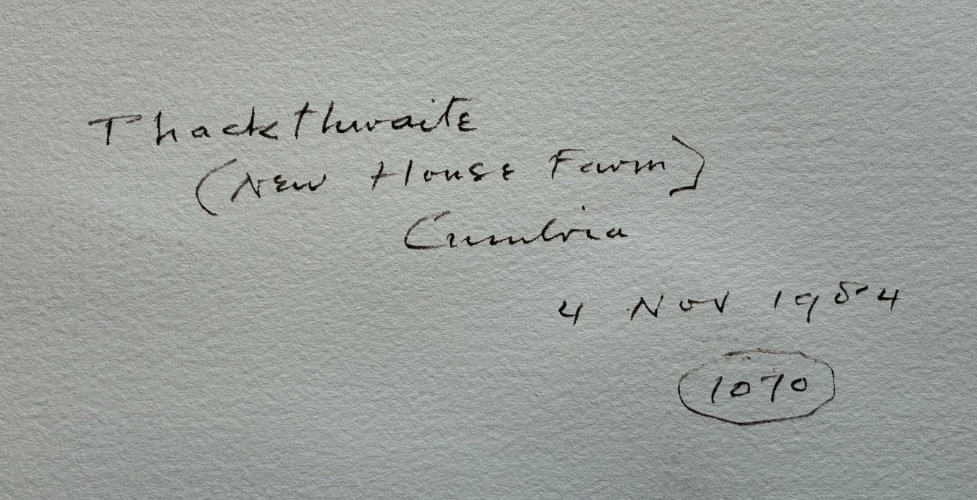 Thackthwaite
(New House Farm)
Cumbria
4 Nov 1984
1070